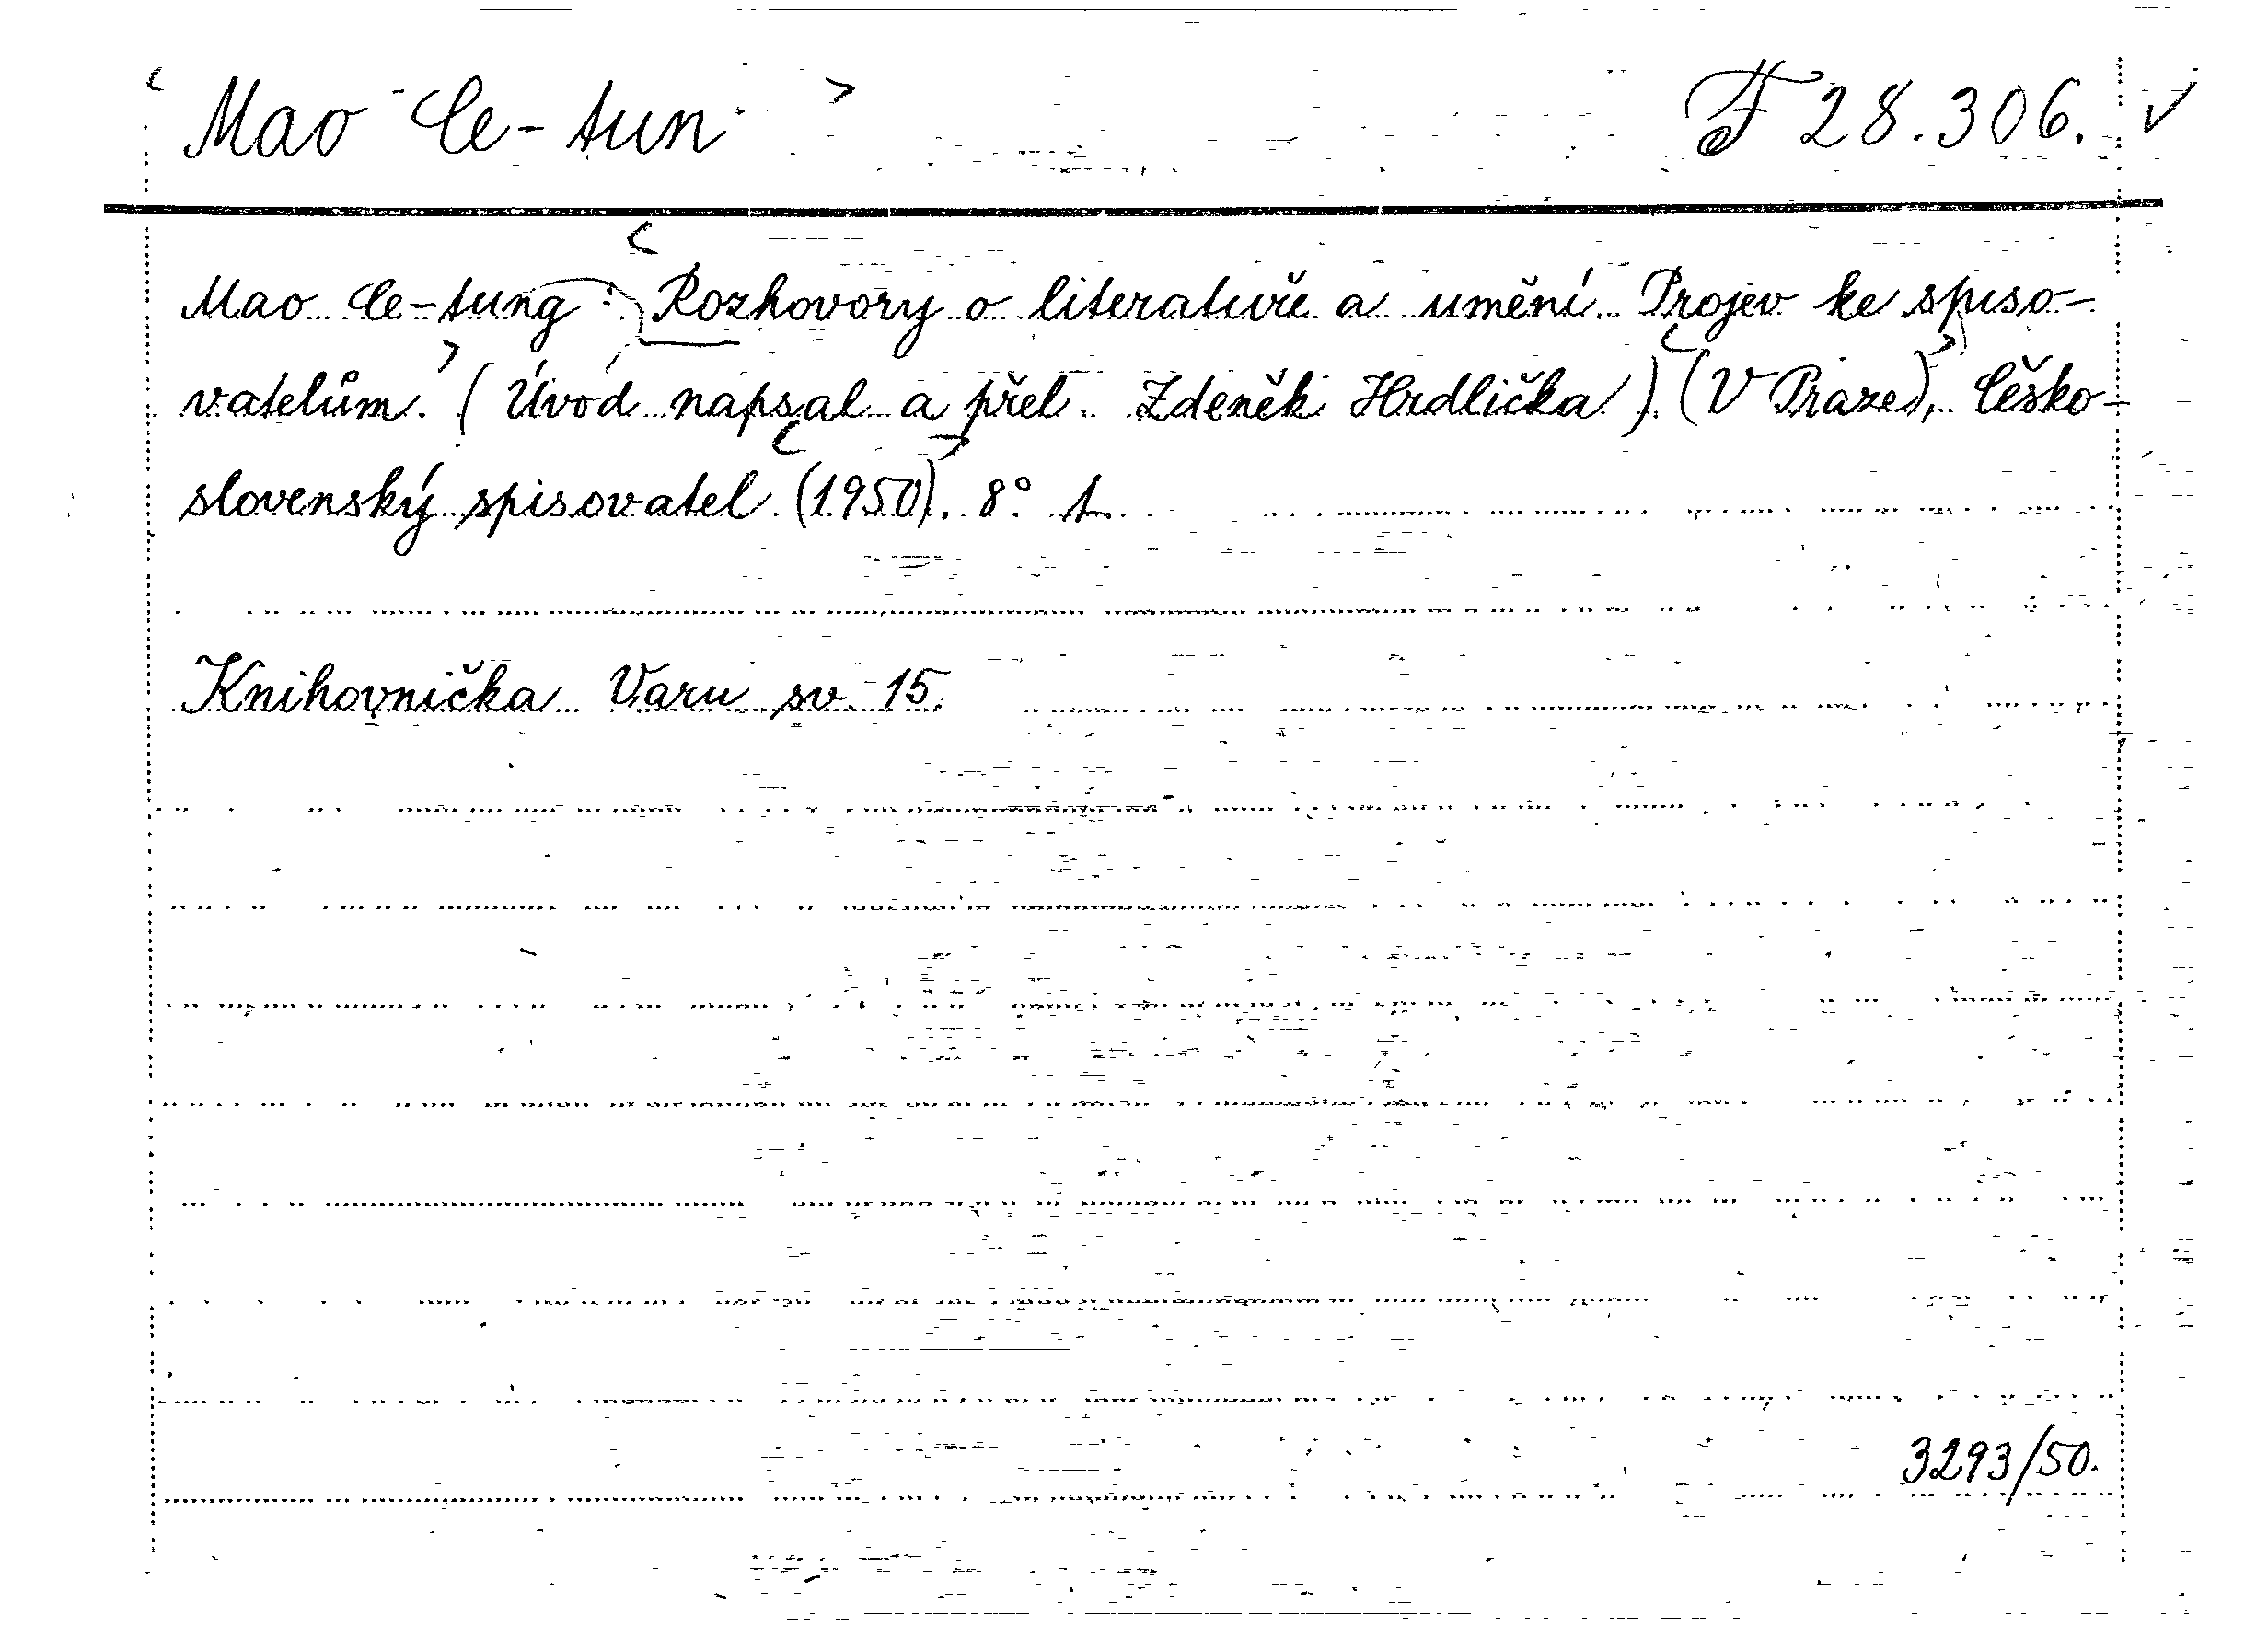 Mao Ce-tun F 28.306. ✓
Mao Ce-tung: Rozhovory o literatuře a umění. Projev ke spiso-
vatelům. (Úvod napsal a přel. Zdeněk Hrdlička). (V Praze), Česko-
slovenský spisovatel (1950). 8° 1.
Knihovnička Varu sv. 15.
3293/50.